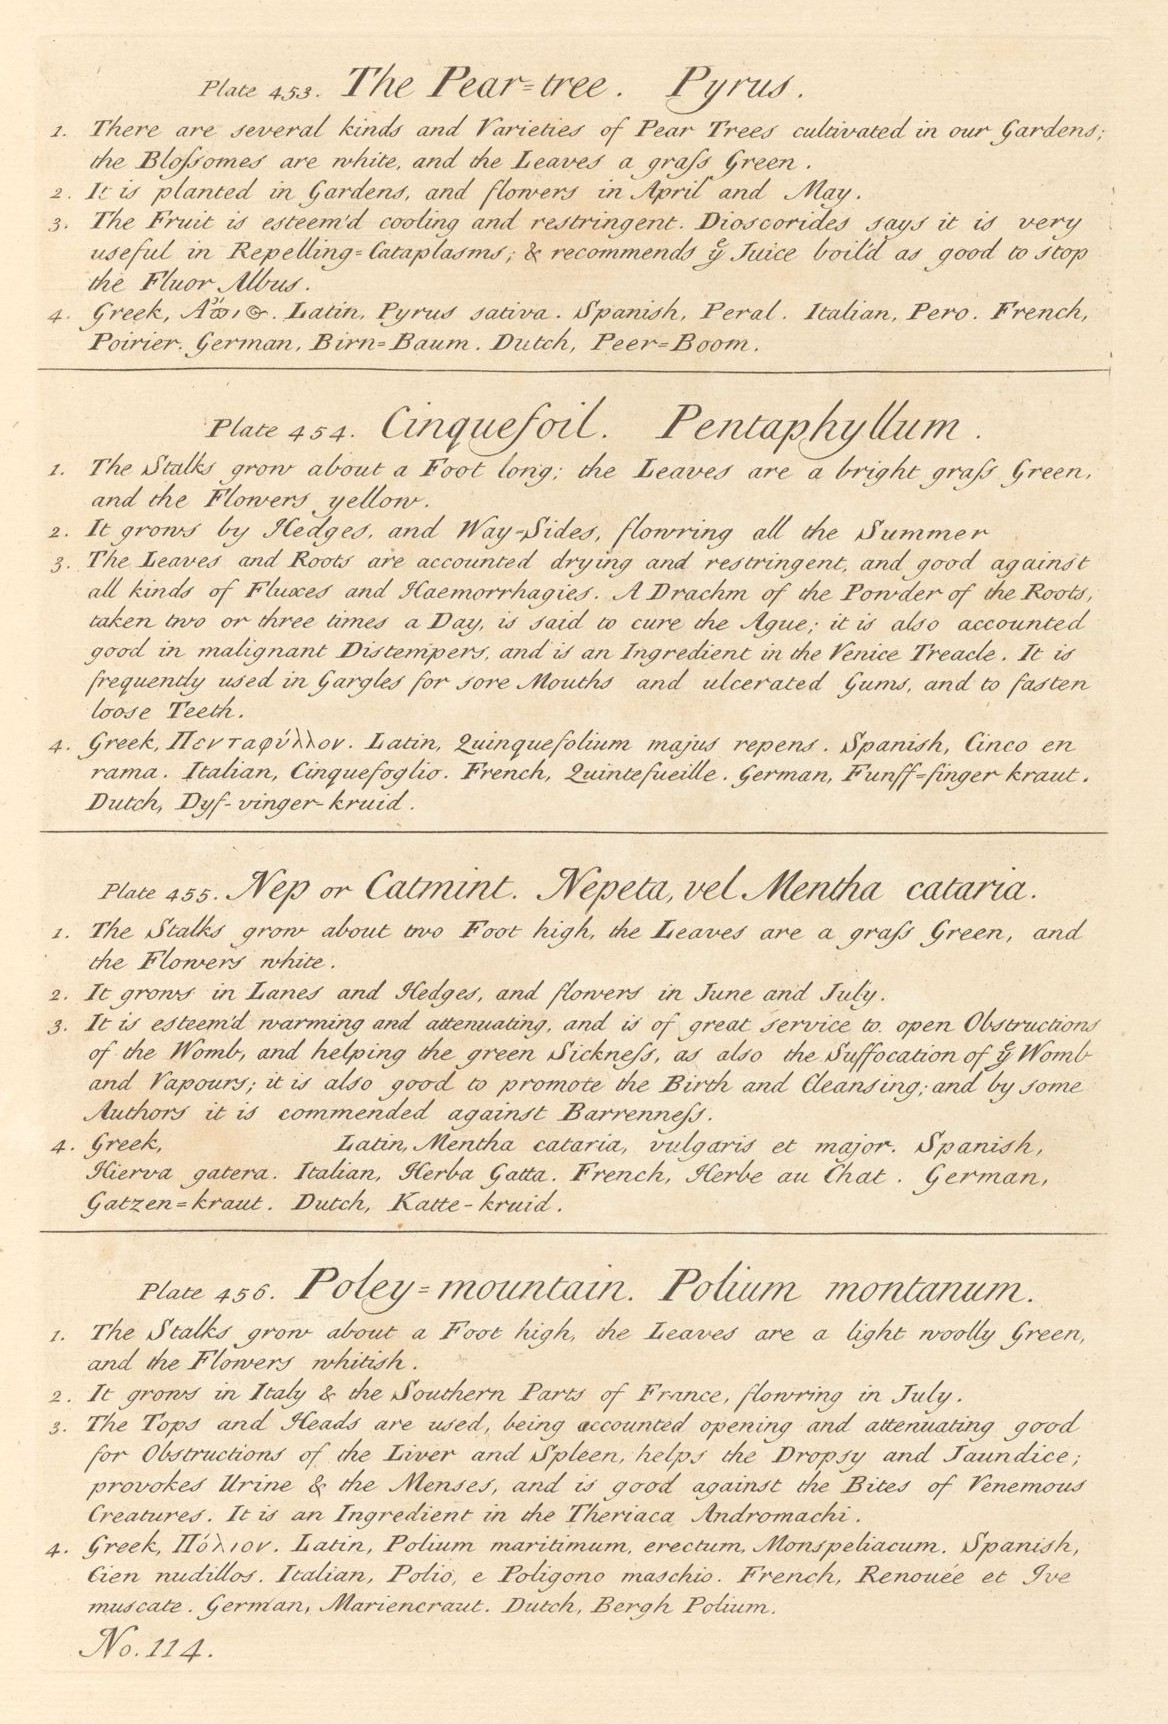 Plate 453. The Pear=tree. Pyrus.
1. There are several kinds and Varieties of Pear Trees cultivated in our Gardens;
the Bloſsomes are white, and the Leaves a graſs Green.
2. It is planted in Gardens, and flowers in April and May.
3. The Fruit is esteem'd cooling and restringent. Dioscorides says it is very
useful in Repelling=Cataplasms; & recommends yͤ Juice boil'd as good to stop
the Fluor Albus.
4. Greek, Latin, Pyrus sativa. Spanish, Peral. Italian, Pero. French,
Poirier. German, Birn=Baum. Dutch, Peer=Boom.
Plate 454. Cinquefoil. Pentaphyllum.
1. The Stalks grow about a Foot long; the Leaves are a bright graſs Green,
and the Flowers yellow.
2. It grows by Hedges, and Way-Sides, flowring all the Summer
3. The Leaves and Roots are accounted drying and restringent, and good against
all kinds of Fluxes and Haemorrhagies. A Drachm of the Powder of the Roots,
taken two or three times a Day, is said to cure the Ague; it is also accounted
good in malignant Distempers, and is an Ingredient in the Venice Treacle. It is
frequently used in Gargles for sore Mouths and ulcerated Gums, and to fasten
loose Teeth.
4. Greek, Πενταφύλλον. Latin, Quinquefolium majus repens. Spanish, Cinco en
rama. Italian, Cinquefoglio. French, Quintefueille. German, Funff=finger kraut.
Dutch, Dyf-vinger-kruid.
Plate 455. Nep or Catmint. Nepeta, vel Mentha cataria.
1. The Stalks grow about two Foot high, the Leaves are a graſs Green, and
the Flowers white.
2. It grows in Lanes and Hedges, and flowers in June and July.
3. It is esteem'd warming and attenuating, and is of great service to open Obstructions
of the Womb, and helping the green Sickneſs, as also the Suffocation of yͤ Womb
and Vapours; it is also good to promote the Birth and Cleansing; and by some
Authors it is commended against Barrenneſs.
4. Greek, Latin, Mentha cataria, vulgaris et major. Spanish,
Hierva gatera. Italian, Herba Gatta. French, Herbe au Chat. German,
Gatzen=kraut. Dutch, Katte-kruid.
Plate 456. Poley=mountain. Polium montanum.
1. The Stalks grow about a Foot high, the Leaves are a light woolly Green,
and the Flowers whitish.
2. It grows in Italy & the Southern Parts of France, flowring in July.
3. The Tops and Heads are used, being accounted opening and attenuating good
for Obstructions of the Liver and Spleen, helps the Dropsy and Jaundice;
provokes Urine & the Menses, and is good against the Bites of Venemous
Creatures. It is an Ingredient in the Theriaca Andromachi.
4. Greek, Πόλιον. Latin, Polium maritimum, erectum, Monspeliacum. Spanish,
Cien nudillos. Italian, Polio, e Poligono maschio. French, Renouée et Ive
muscate. German, Mariencraut. Dutch, Bergh Polium.
No. 114.